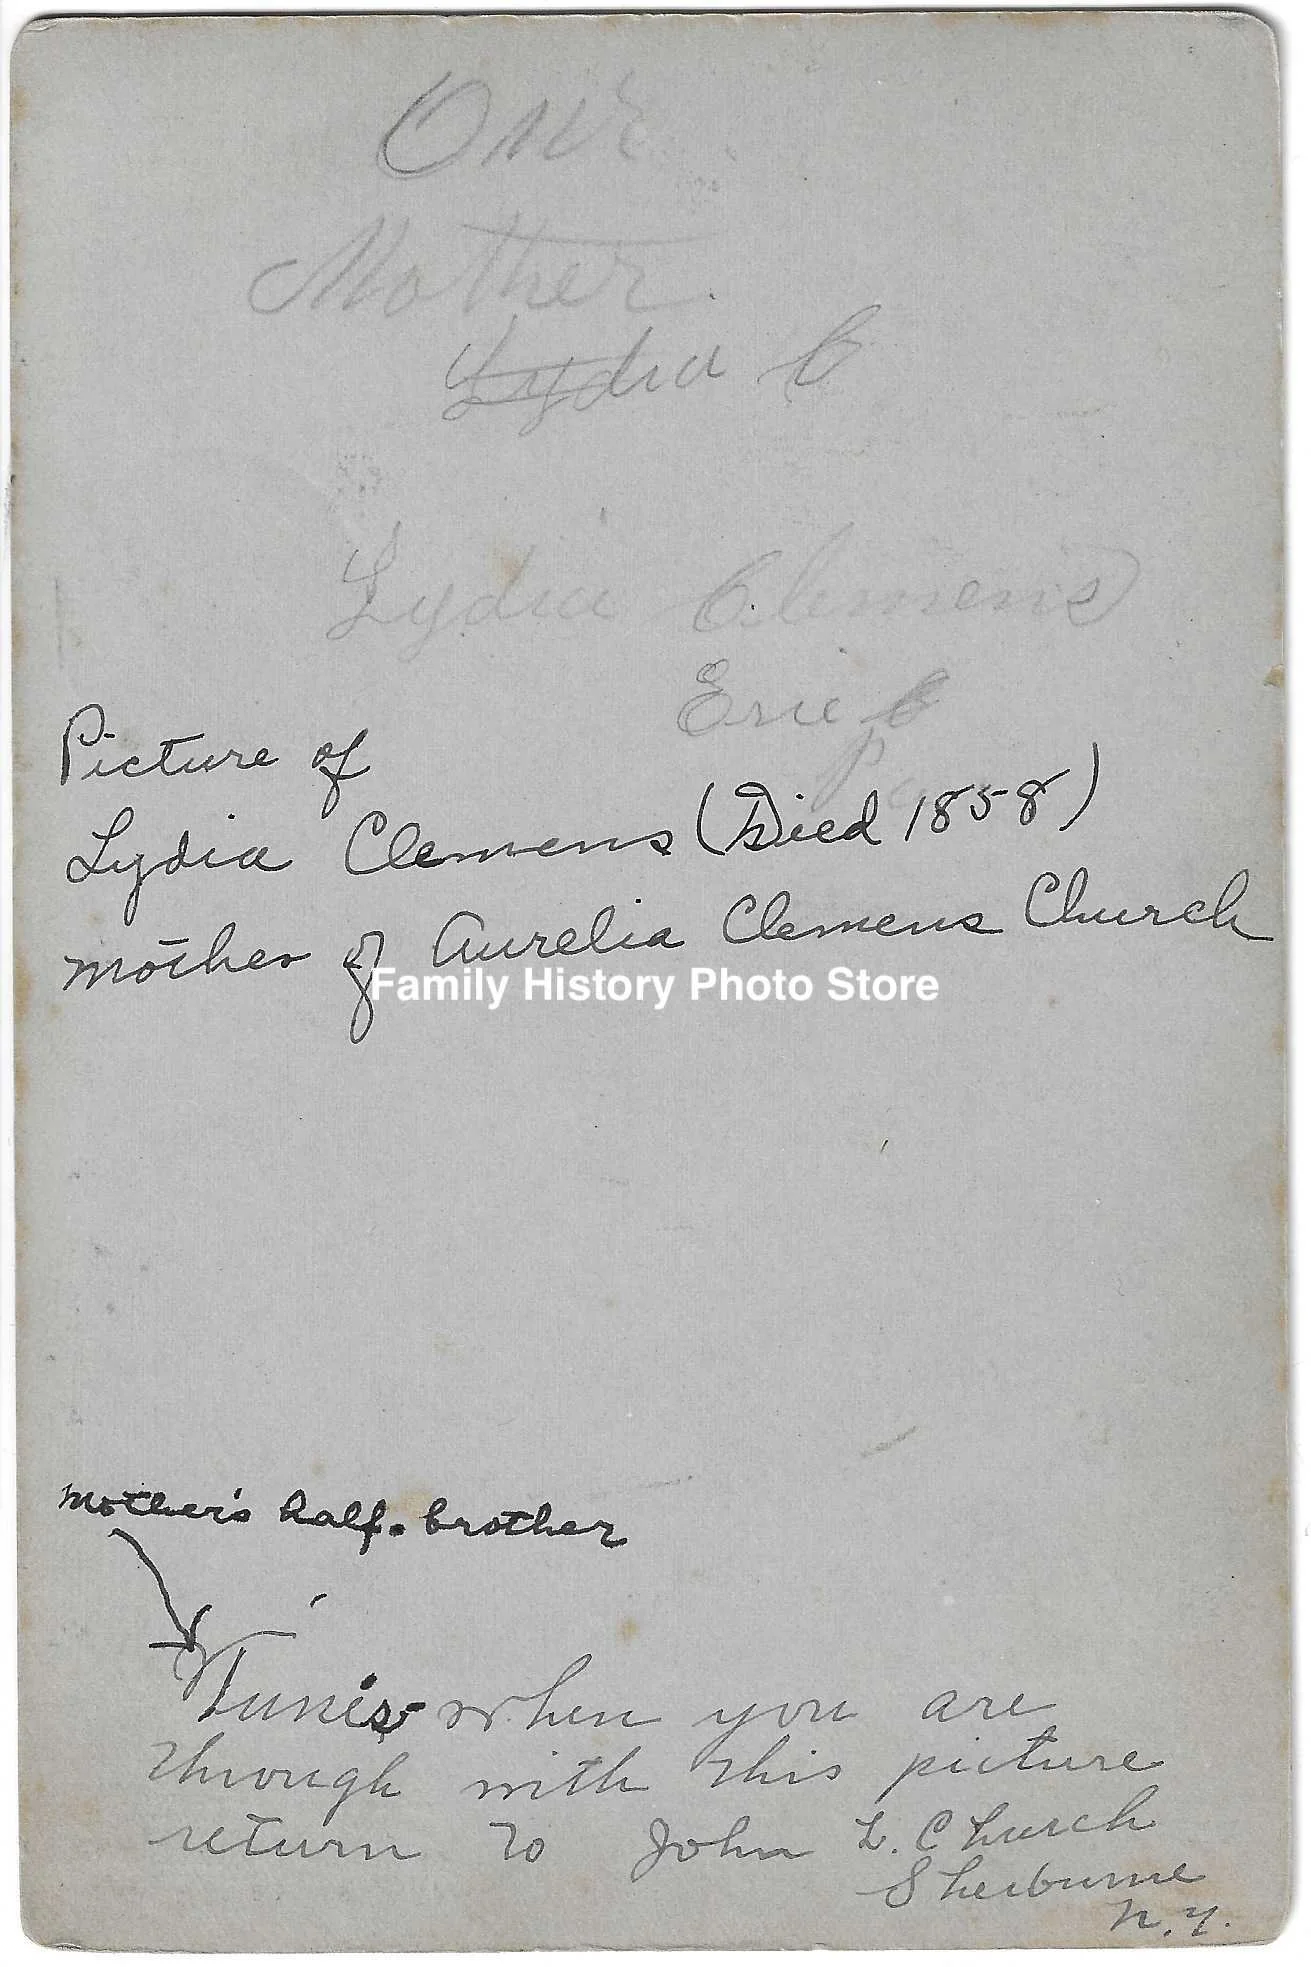 Our
Mother.
Lydia C
Lydia Clemens
Erie C
Pa
Picture of
Lydia Clemens (Died 1858)
mother of Aurelia Clemens Church
Family History Photo Store
Mother's half-brother
Tunis when you are
through with this picture
return to John L. Church
Sherburne
N.Y.